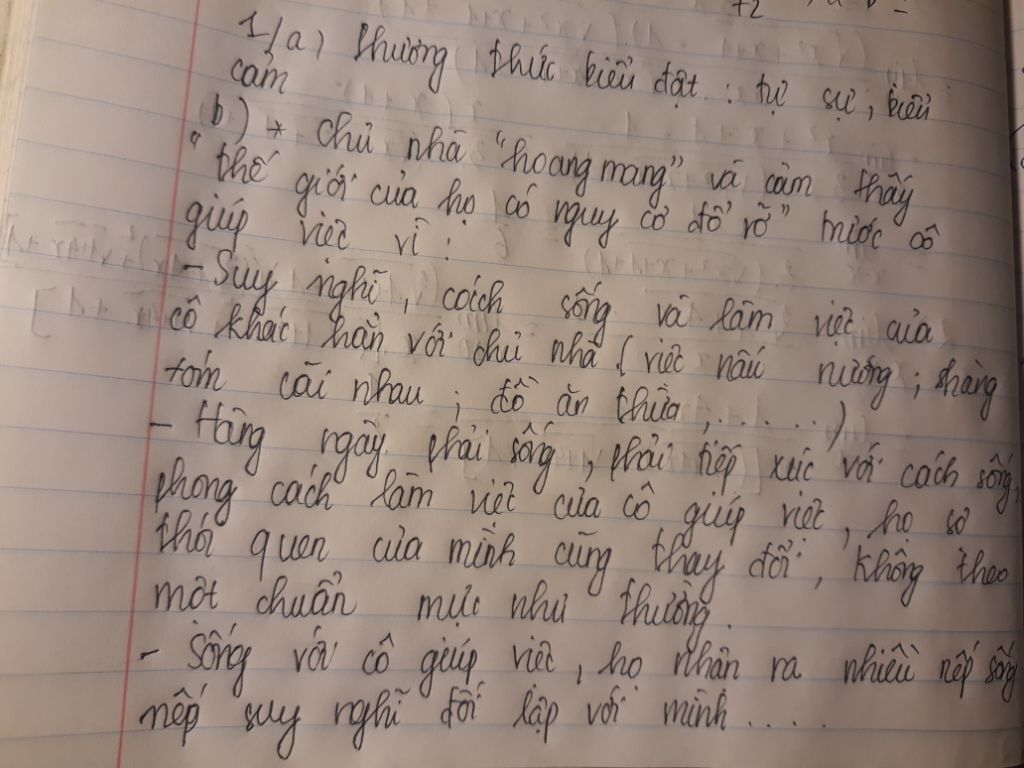 +2
1/a) Phương thức biểu đạt : tự sự, biểu
cảm
b) * chủ nhà "hoang mang" và cảm thấy
"thế giới của họ có nguy cơ đổ vỡ" trước cô
giúp việc vì :
- Suy nghĩ, cách sống và làm việc của
cô khác hẳn với chủ nhà (việc nấu nướng ; hàng
tôm cãi nhau ; đồ ăn thừa ;.....)
- Hàng ngày phải sống, phải tiếp xúc với cách sống,
phong cách làm việc của cô giúp việc, họ sợ
thói quen của mình cũng thay đổi, không theo
một chuẩn mực như thường.
- Sống với cô giúp việc, họ nhận ra nhiều nếp sống
nếp suy nghĩ đối lập với mình ....